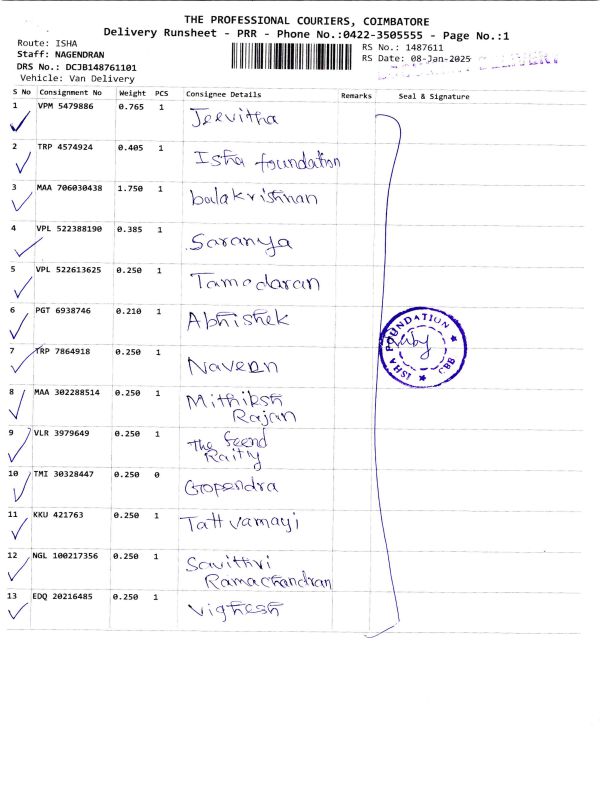 THE PROFESSIONAL COURIERS, COIMBATORE
Delivery Runsheet - PRR - Phone No.:0422-3505555 - Page No.:1
Route: ISHA
Staff: NAGENDRAN
DRS No.: DCJB148761101
Vehicle: Van Delivery
RS No.: 1487611
RS Date: 08-Jan-2025
S No Consignment No Weight PCS Consignee Details Remarks Seal & Signature
1 VPM 5479886 0.765 1 Jeevitha
2 TRP 4574924 0.405 1 Isha foundation
3 MAA 706030438 1.750 1 balakrishnan
4 VPL 522388190 0.385 1 Saranya
5 VPL 522613625 0.250 1 Tamodaran
6 PGT 6938746 0.210 1 Abhishek
7 TRP 7864918 0.250 1 Naveen
8 MAA 302288514 0.250 1 Mithiksh
Rajan
9 VLR 3979649 0.250 1 The
10 TMI 30328447 0.250 0 Gopendra
11 KKU 421763 0.250 1 Tattvamayi
12 NGL 100217356 0.250 1 Savithri
Ramachandran
13 EDQ 20216485 0.250 1 Vighesh
ISHA FOUNDATION ★ CBB ★